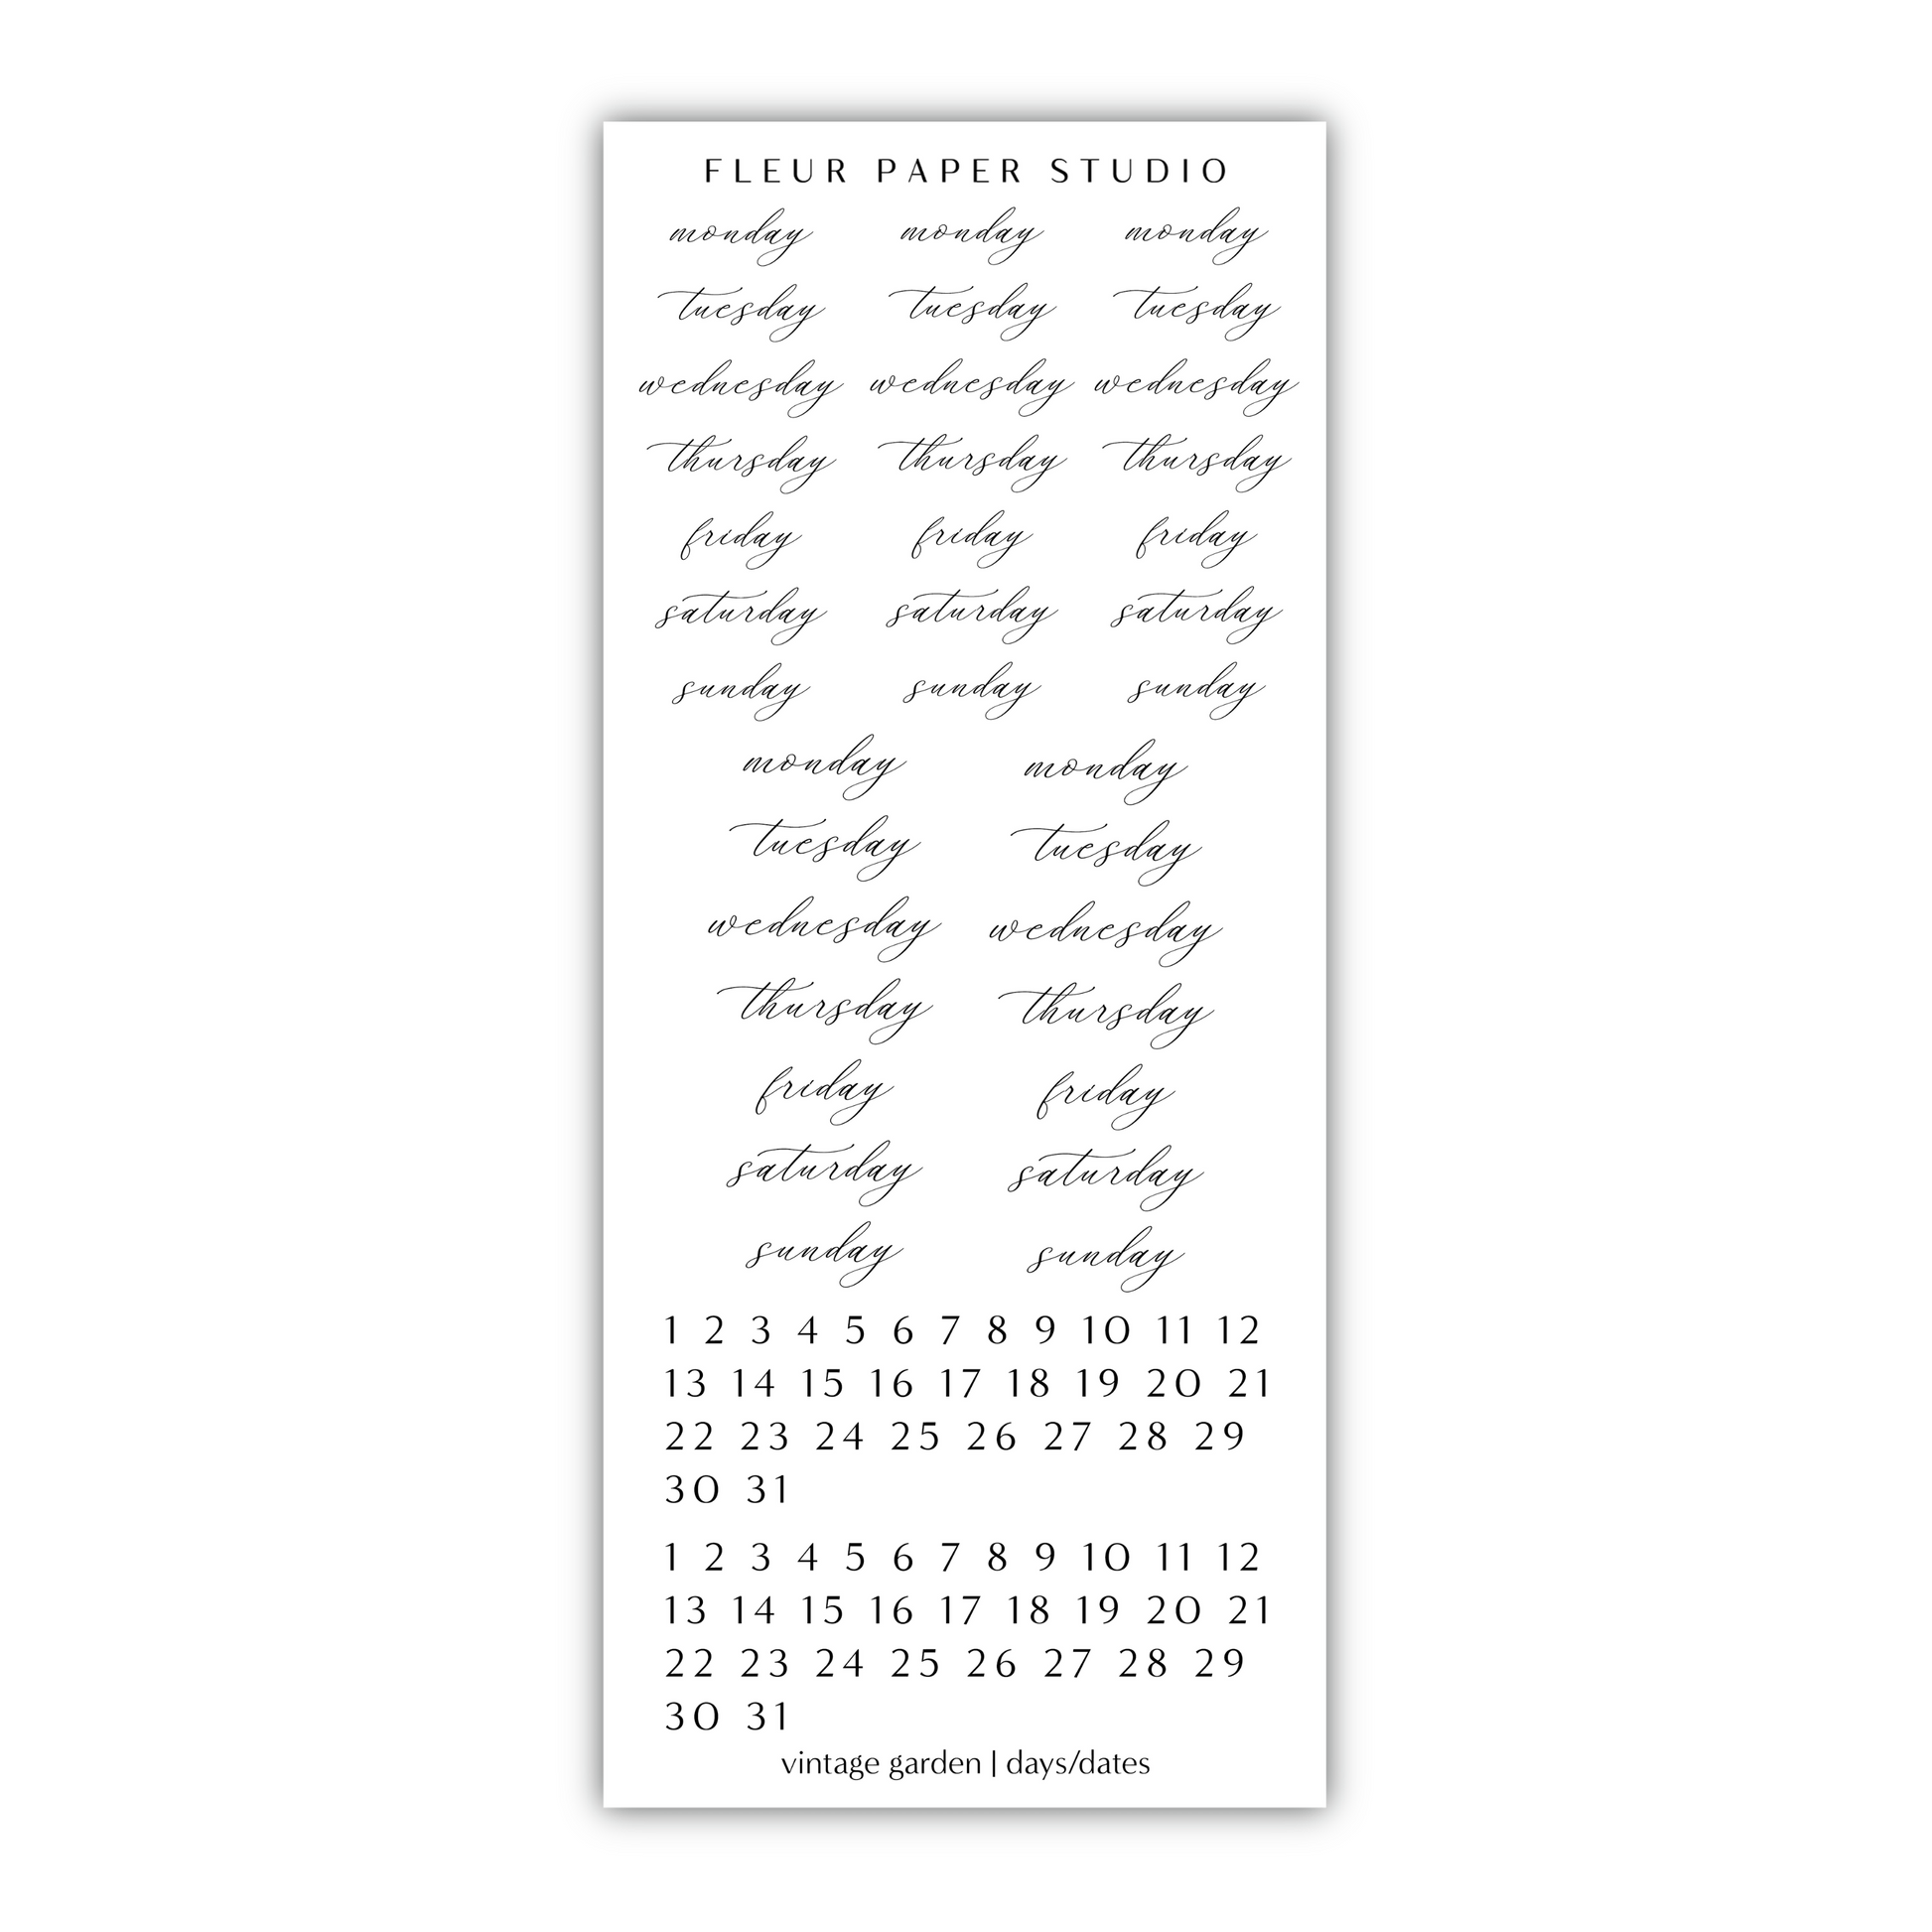 FLEUR PAPER STUDIO
monday monday monday
tuesday tuesday tuesday
wednesday wednesday wednesday
thursday thursday thursday
friday friday friday
saturday saturday saturday
sunday sunday sunday
monday monday
tuesday tuesday
wednesday wednesday
thursday thursday
friday friday
saturday saturday
sunday sunday
1 2 3 4 5 6 7 8 9 10 11 12
13 14 15 16 17 18 19 20 21
22 23 24 25 26 27 28 29
30 31
1 2 3 4 5 6 7 8 9 10 11 12
13 14 15 16 17 18 19 20 21
22 23 24 25 26 27 28 29
30 31
vintage garden | days/dates